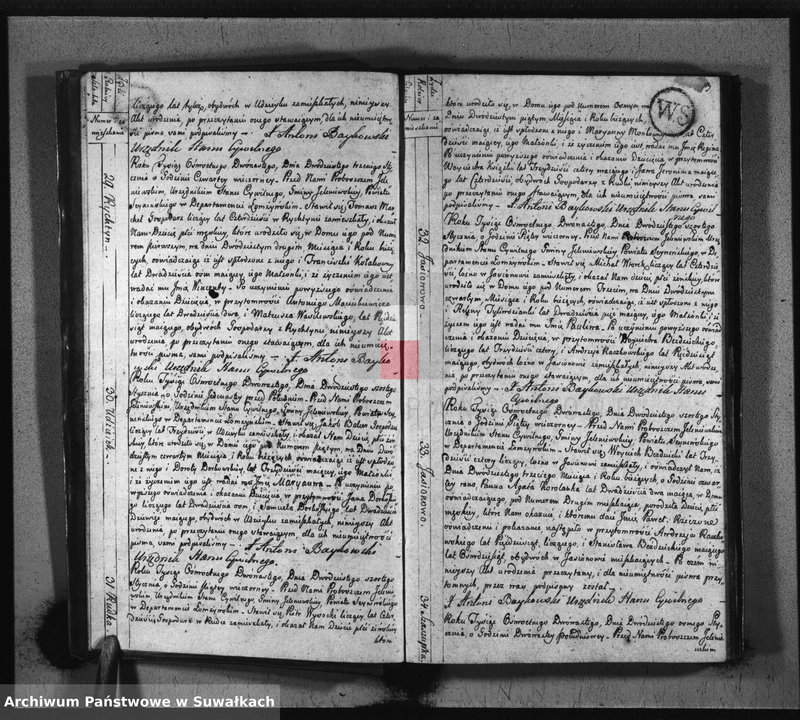 liczącego lat obydwóch w Udzieyku zamieszkałych, ninieyszy
Akt urodzenia, po przeczytaniu onego stawaiącym, dla ich nieumieiętno
ści pisma sami podpisaliśmy. X Antoni Baykowski
Urzędnik Stanu Cywilnego
29. Rychtyn.
Roku Tysiąc Osmsetnego Dwunastego, Dnia Dwudziestego trzeciego Sty
cznia o Godzinie Czwartey wieczorney. Przed Nami Proboszczem Jele
niewskim, Urzędnikiem Stanu Cywilnego, Gminy Jeleniewskiey, Powiatu
Seyneńskiego w Departamencie Łomżyńskim. Stawił się Tomasz
Gospodarz liczący lat Czterdzieści w Rychtynie zamieszkały, i okazał
Nam Dziecię płci męzkiey, które urodziło się w Domu iego pod Num
rem pierwszym, na dniu Dwudziestym drugim Miesiąca i Roku bieżą
cych, oświadczaiąc iż iest spłodzone z niego i Franciszki
lat Dwadzieścia ośm maiącey, iego Małżonki, i że życzeniem iego iest
nadać mu Imię Wincenty. Po uczynieniu powyższego oświadczenia
i okazaniu Dziecięcia w przytomności Antoniego Maciukiewicza
liczącego lat Dwadzieścia dwa, i Mateusza Wasilewskiego, lat Pięćdzie
siąt maiącego, obydwóch Gospodarzy z Rychtyna ninieyszy Akt
urodzenia, po przeczytaniu onego stawaiącym, dla ich nieumieię
tności pisma, sami podpisaliśmy. X Antoni Bayko
wski Urzędnik Stanu Cywilnego
30. Udzieiek.
Roku Tysiąc Osmsetnego Dwunastego, Dnia Dwudziestego szóstego
Stycznia o Godzinie przed Południem. Przed Nami Proboszczem
Jeleniewskim, Urzędnikiem Stanu Cywilnego, Gminy Jeleniewskiey, Powiatu Sey
neńskiego w Departamencie Łomżyńskim. Stawił się Jakób
liczący lat Trzydzieści w Udzieyku zamieszkały, i okazał Nam Dziecię płci żeń
skiey, które urodziło się w Domu iego pod Numerem piętym, na Dniu Dwu
dziestym czwartym Miesiąca i Roku bieżących, oświadczaiąc iż iest spłodzo
ne z niego i Doroty lat Trzydzieści maiącey, iego Małżonki
i że życzeniem iego iest nadać mu Imię Maryanna. Po uczynieniu po
wyższego oświadczenia i okazania Dziecięcia, w przytomności Jana
liczącego lat Dwadzieścia ośm, i Samuela lat Dwadzieścia
Dziewięć maiącego, obydwóch w Udzieyku zamieszkałych, ninieyszy Akt
urodzenia, po przeczytaniu onego stawaiącym, dla ich nieumieiętności
pisma, sami podpisaliśmy. X Antoni Baykowski
Urzędnik Stanu Cywilnego.
31 Rudka.
Roku Tysiąc Osmsetnego Dwunastego, Dnia Dwudziestego szóstego
Stycznia, o Godzinie piątey wieczorney. Przed Nami Proboszczem Jelenie
wskim, Urzędnikiem Stanu Cywilnego, Gminy Jeleniewskiey, Powiatu Seyneńskiego
w Departamencie Łomżyńskim. Stawił się Piotr Wysocki liczący lat Czter
dzieści Gospodarz w Rudce zamieszkały, i okazał Nam Dziecię płci żeńskiey
które
które urodziło się, w Domu iego pod Numerem Osmym na
Dniu Dwudziestym piątym, Miesiąca i Roku bieżących,
oświadczaiąc iż iest spłodzone z niego i Maryanny lat Czter
dzieści maiącey, iego Małżonki, i że życzeniem iego iest nadać mu Imię Regina
Po uczynieniu powyższego oświadczenia i okazaniu Dziecięcia w przytomności
Woyciecha lat Trzydzieści cztery maiącego, i Jana Jeronima maiące
go lat Czterdzieści, obydwóch Gospodarzy z Rudki ninieyszy Akt urodzenia
po przeczytaniu onego stawaiącym, dla ich nieumieiętności pisma, sami
podpisaliśmy. X Antoni Baykowski Urzędnik Stanu Cywil
nego
WS
32. Jasionowo.
Roku Tysiąc Osmsetnego, Dwunastego, Dnia Dwudziestego szóstego
Stycznia, o Godzinie Piątey wieczorney. Przed Nami Proboszczem Jeleniewskim Urzę
dnikiem Stanu Cywilnego Gminy Jeleniewskiey Powiatu Seyneńskiego, w De
partamencie Łomżyńskim. Stawił się Michał liczący lat Czterdzie
ści, w Jasionowie zamieszkały, i okazał Nam dziecię, płci żeńskiey, które
urodziło się w Domu iego pod Numerem Trzecim, na Dniu Dwudziestym
czwartym, Miesiąca i Roku bieżących, oświadczaiąc, iż iest spłodzone z niego
i Heleny lat Dwadzieścia pięć maiącey, iego Małżonki i iż
życzeniem iego iest nadać mu Imię Paulina. Po uczynieniu powyższego oświad
czenia i okazaniu Dziecięcia, w przytomności Woyciecha
liczącego lat Trzydzieści cztery, i Andrzeia Raczkowskiego lat Pięćdziesiąt
maiącego, obydwóch w Jasionowie zamieszkałych, ninieyszy Akt urodze
nia, po przeczytaniu onego stawaiącym, dla ich nieumieiętności pisma, sami
podpisaliśmy. X Antoni Baykowski Urzędnik Stanu
Cywilnego
33. Jasionowo.
Roku Tysiąc Osmsetnego Dwunastego, Dnia Dwudziestego szóstego Sty
cznia, o Godzinie Piątey wieczorney. Przed Nami Proboszczem Jeleniewskim
Urzędnikiem Stanu Cywilnego, Gminy Jeleniewskiey, Powiatu Seyneńskiego
w Departamencie Łomżyńskim. Stawił się Woyciech lat Trzy
dzieści cztery liczący, w Jasionowie zamieszkały, i oświadczył Nam, iż
Dnia Dwudziestego trzeciego Miesiąca i Roku bieżących, o Godzinie czwar
tey rano, Panna Agata lat Dwadzieścia dwa maiąca, w Domu
oświadczaiącego, pod Numerem Drugim mieszkaiąca, porodziła Dziecię płci
męzkiey, które Nam okazał, i któremu daie Imię Paweł. Rzeczone
oświadczenie i pokazanie nastąpiło w przytomności Andrzeia Raczko
wskiego lat Pięćdziesiąt, liczącego, i Stanisława maiącego
lat w Jasionowie mieszkaiących. Po czem ni
nieyszy Akt urodzenia przeczytany, i dla nieumieiętności pisma przy
tomnych, przez nas podpisany został.
X Antoni Baykowski Urzędnik Stanu Cywilnego
34 Łaszupka.
Roku Tysiąc Osmsetnego Dwunastego, Dnia Dwudziestego osmego Sty
cznia, o Godzinie Dwunastey Południowey. Przed Nami Proboszczem Jelenie
wskim
Archiwum Państwowe w Suwałkach